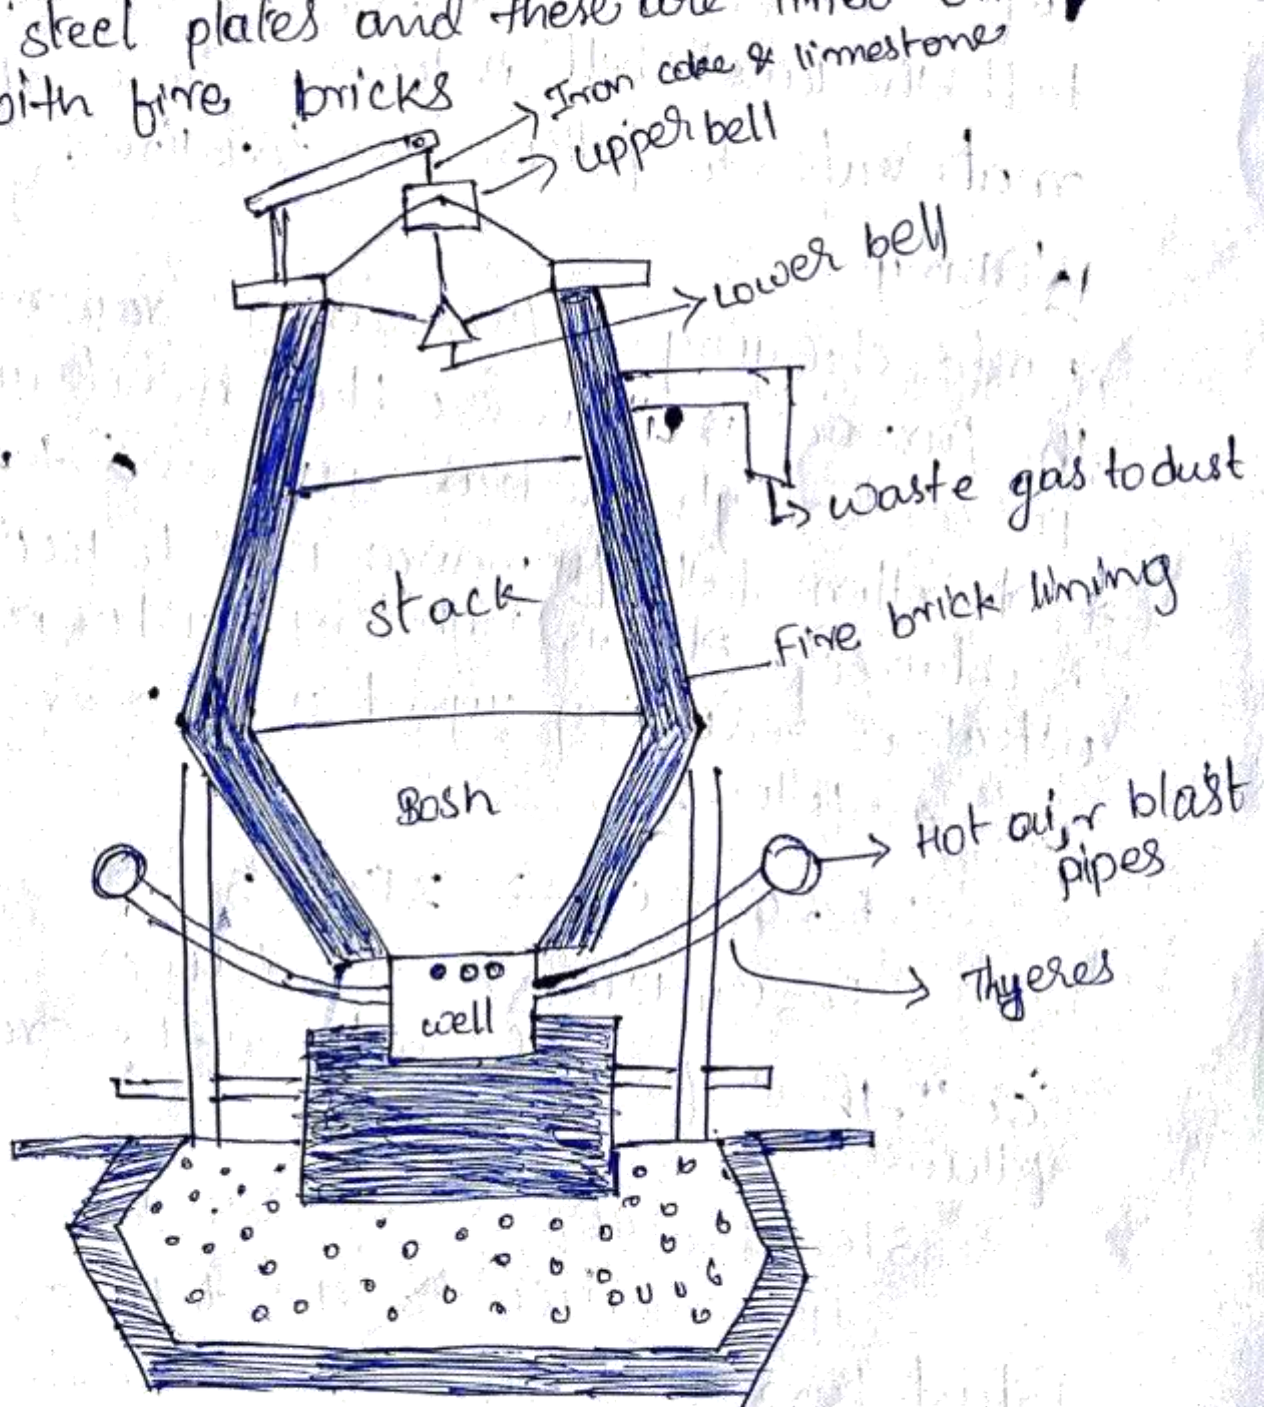 steel plates and these are lined
with fire bricks
Iron coke & limestone
upper bell
Lower bell
waste gas to dust
stack
Fire brick lining
Bosh
Hot air blast
pipes
Thyeres
well